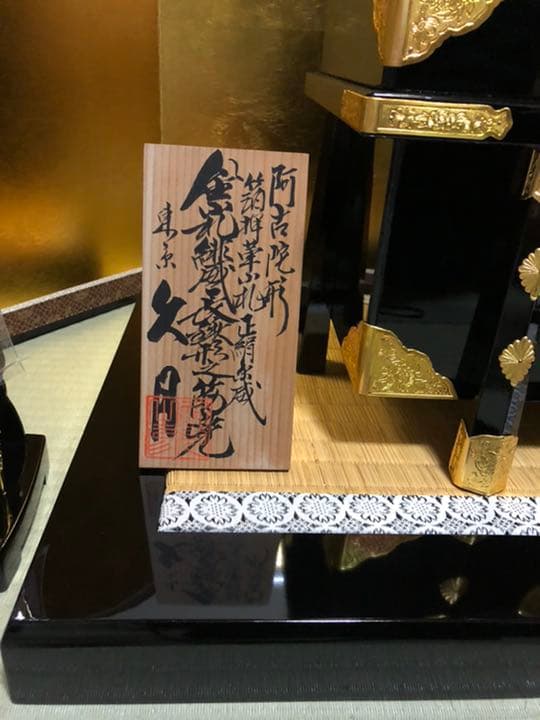 阿古陀形
箔押革小札正絹糸威
金小札緋威長鍬之荘兜
東京 久月